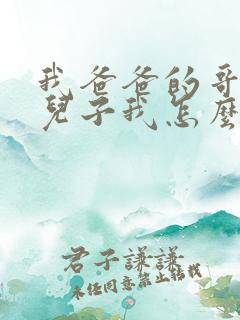 我爸爸的哥
兒子我怎麼
君子謙謙
未任同意禁止搭我